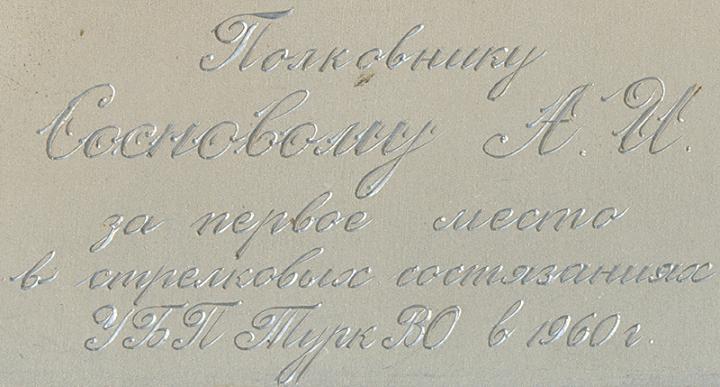 Полковнику
Сосновому А. И.
за первое место
в стрелковых состязаниях
УБП ТуркВО в 1960 г.